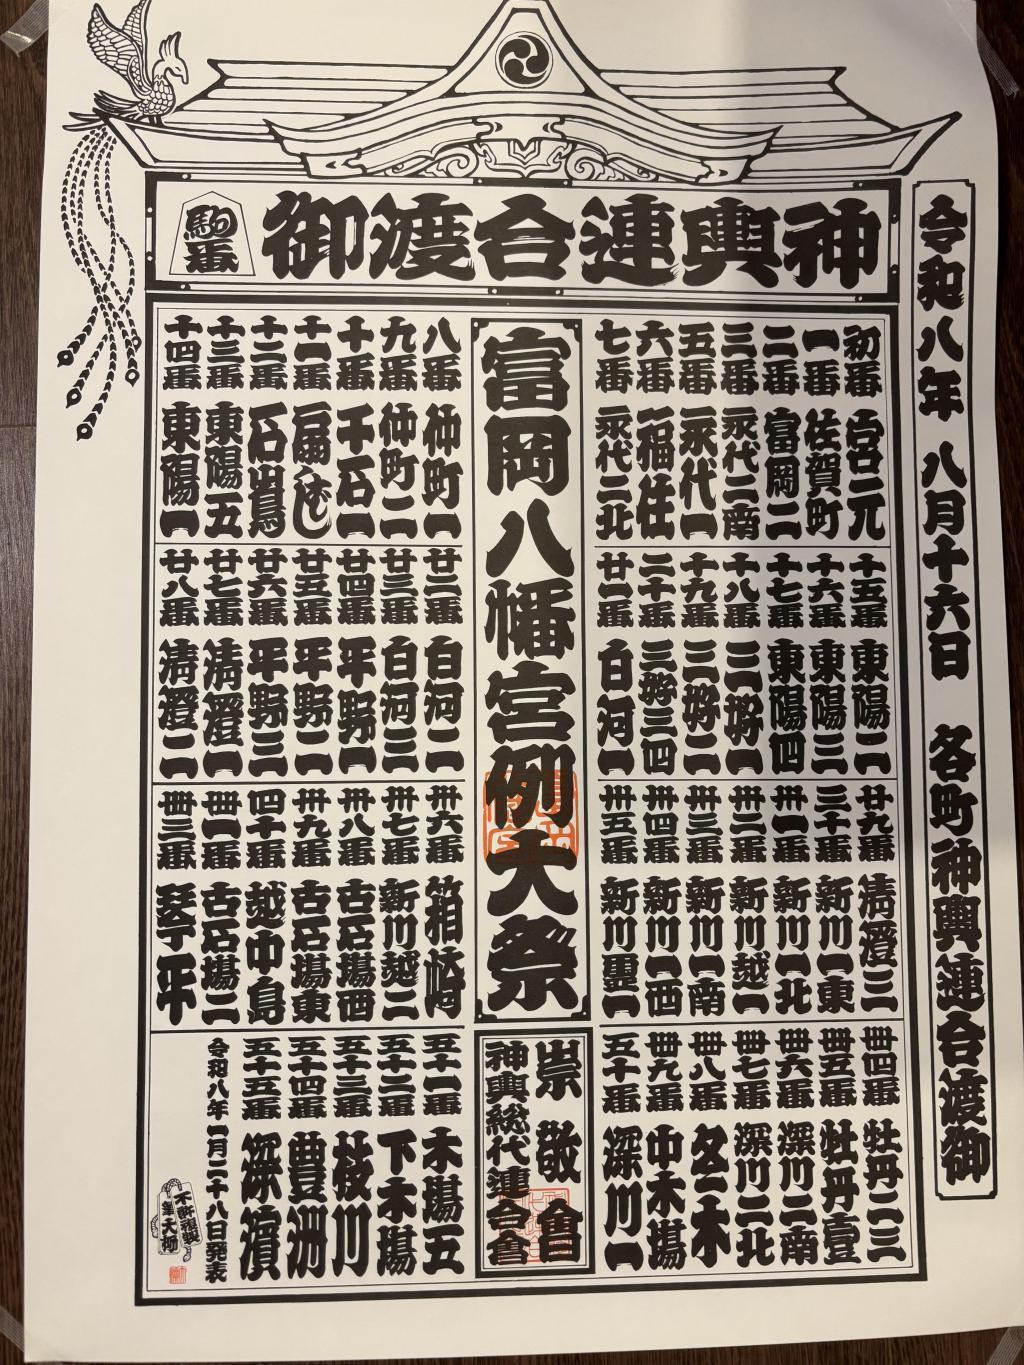 神輿連合渡御
駒番
令和八年 八月十六日 各町神輿連合渡御
初番 宮元
一番 佐賀町
二番 富岡二
三番 永代二南
五番 永代一
六番 福住
七番 永代二北
富岡八幡宮例大祭
八番 仲町一
九番 仲町二
十番 千石一
十一番 扇ばし
十二番 石嶋
十三番 東陽五
十四番 東陽一
十五番 東陽二
十六番 東陽三
十七番 東陽四
十八番 三好一
十九番 三好二
二十番 三好三四
廿一番 白河一
廿二番 白河二
廿三番 白河三
廿四番 平野一
廿五番 平野二
廿六番 平野三
廿七番 清澄一
廿八番 清澄二
廿九番 清澄三
三十番 新川一東
卅一番 新川一北
卅二番 新川越一
卅三番 新川一南
卅四番 新川一西
卅五番 新川霊一
卅六番 箱崎
卅七番 新川越二
卅八番 古石場西
卅九番 古石場東
四十番 越中島
卌一番 古石場二
卌三番 琴平
卌四番 牡丹二三
卌五番 牡丹壹
卌六番 深川二南
卌七番 深川二北
卌八番 冬木
卌九番 中木場
五十番 深川一
崇敬會
神輿総代連合會
五十一番 木場五
五十二番 下木場
五十三番 枝川
五十四番 豊洲
五十五番 深濱
令和八年一月二十八日発表
不許複製